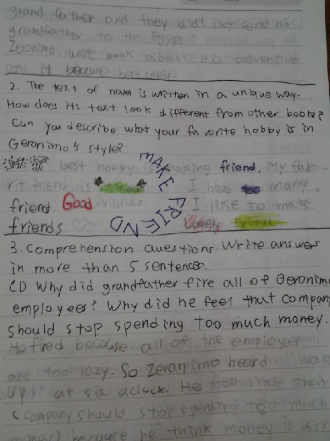 grand father and they did! They send his
grandfather to the Egypt
Zeronimo his adventure
and it became best seller.
2. The text of novel is written in a unique way.
How does its text look different from other books?
Can you describe what your favorite hobby is in
Geronimo's style?
best hobby is making friend. My favo-
rit friend is I have many
friend Good friends. I like to make
friends Lovely
MAKE FRIEND
3. Comprehension Questions. Write answers
in more than 5 sentences.
CD Why did grandfather fire all of Geronimo
employees? Why did he feel that company
should stop spending too much money.
He fired because all of the employer
are too lazy. So Zeronimo heard
up at six aclock. He
company should stop spending too much
because he think money is